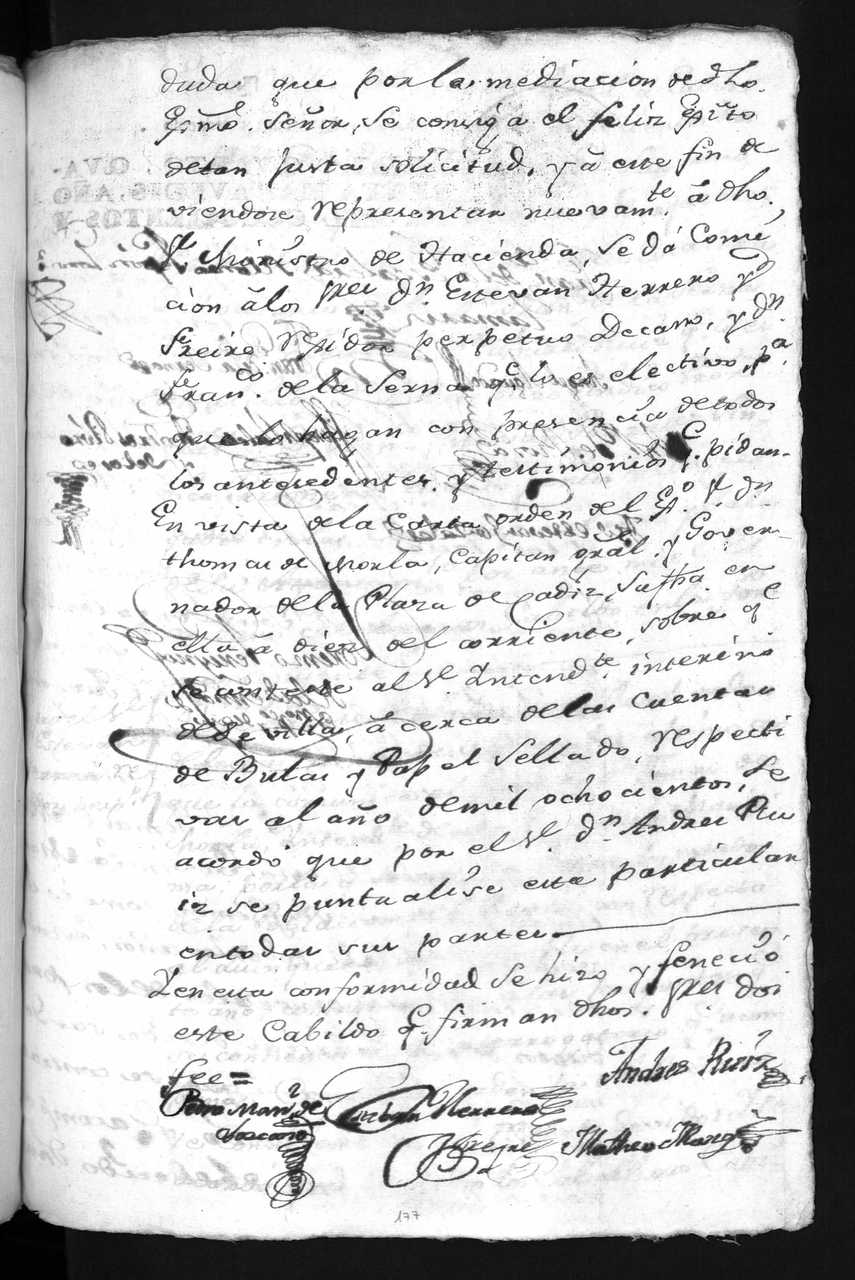 duda que por la mediacion de dho.
Exmo. Señor, se consiga el feliz exito
de tan justa solicitud, y á este fin de
viendose representar nuevamte. á dho.
Sr. Ministro de Hacienda, se dá Comi
cion á los Sres. Dn. Estevan Herrero y
Freire Regidor perpetuo Decano, y Dn.
Franco. de la Serna que lo es electivo, pa.
que lo hagan con presencia de todos
los antesedentes. y testimonios q. pidan-
En vista de la Carta orden del Exo. Sr. Dn.
thomas de Morla, Capitan gral. y Gover-
nador de la Plaza de Cadiz, su fha. en
ella á diez del corriente, sobre qe
se conteste al Sr. Yntendte. interino
de Sevilla, á cerca de las Cuentas
de Bulas y Papel Sellado, respecti
vas al año de mil ochocientos, Se
acordó que por el Sr. Dn. Andres Ru
iz se puntualise este particular
en todas sus partes.
Y en esta conformidad se hizo y feneció
este Cabildo q. firman dhos. Sres. doi
fee=
Andres Ruiz
Pedro Manl. de Esteban Herrero
Toscano y Freire Matheo
177